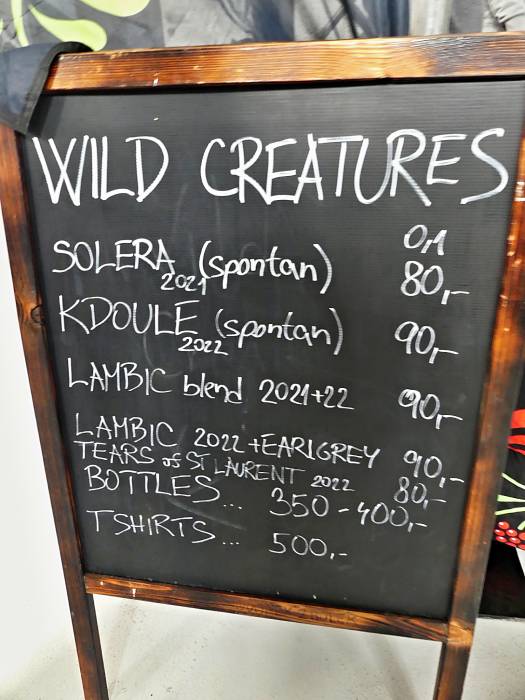 WILD CREATURES
0,1
SOLERA 2021 (spontan) 80,-
KDOULE 2022 (spontan) 90,-
LAMBIC blend 2021+22 90,-
LAMBIC 2022 +EARLGREY 90,-
TEARS of ST LAURENT 2022 80,-
BOTTLES... 350 - 400,-
TSHIRTS... 500,-